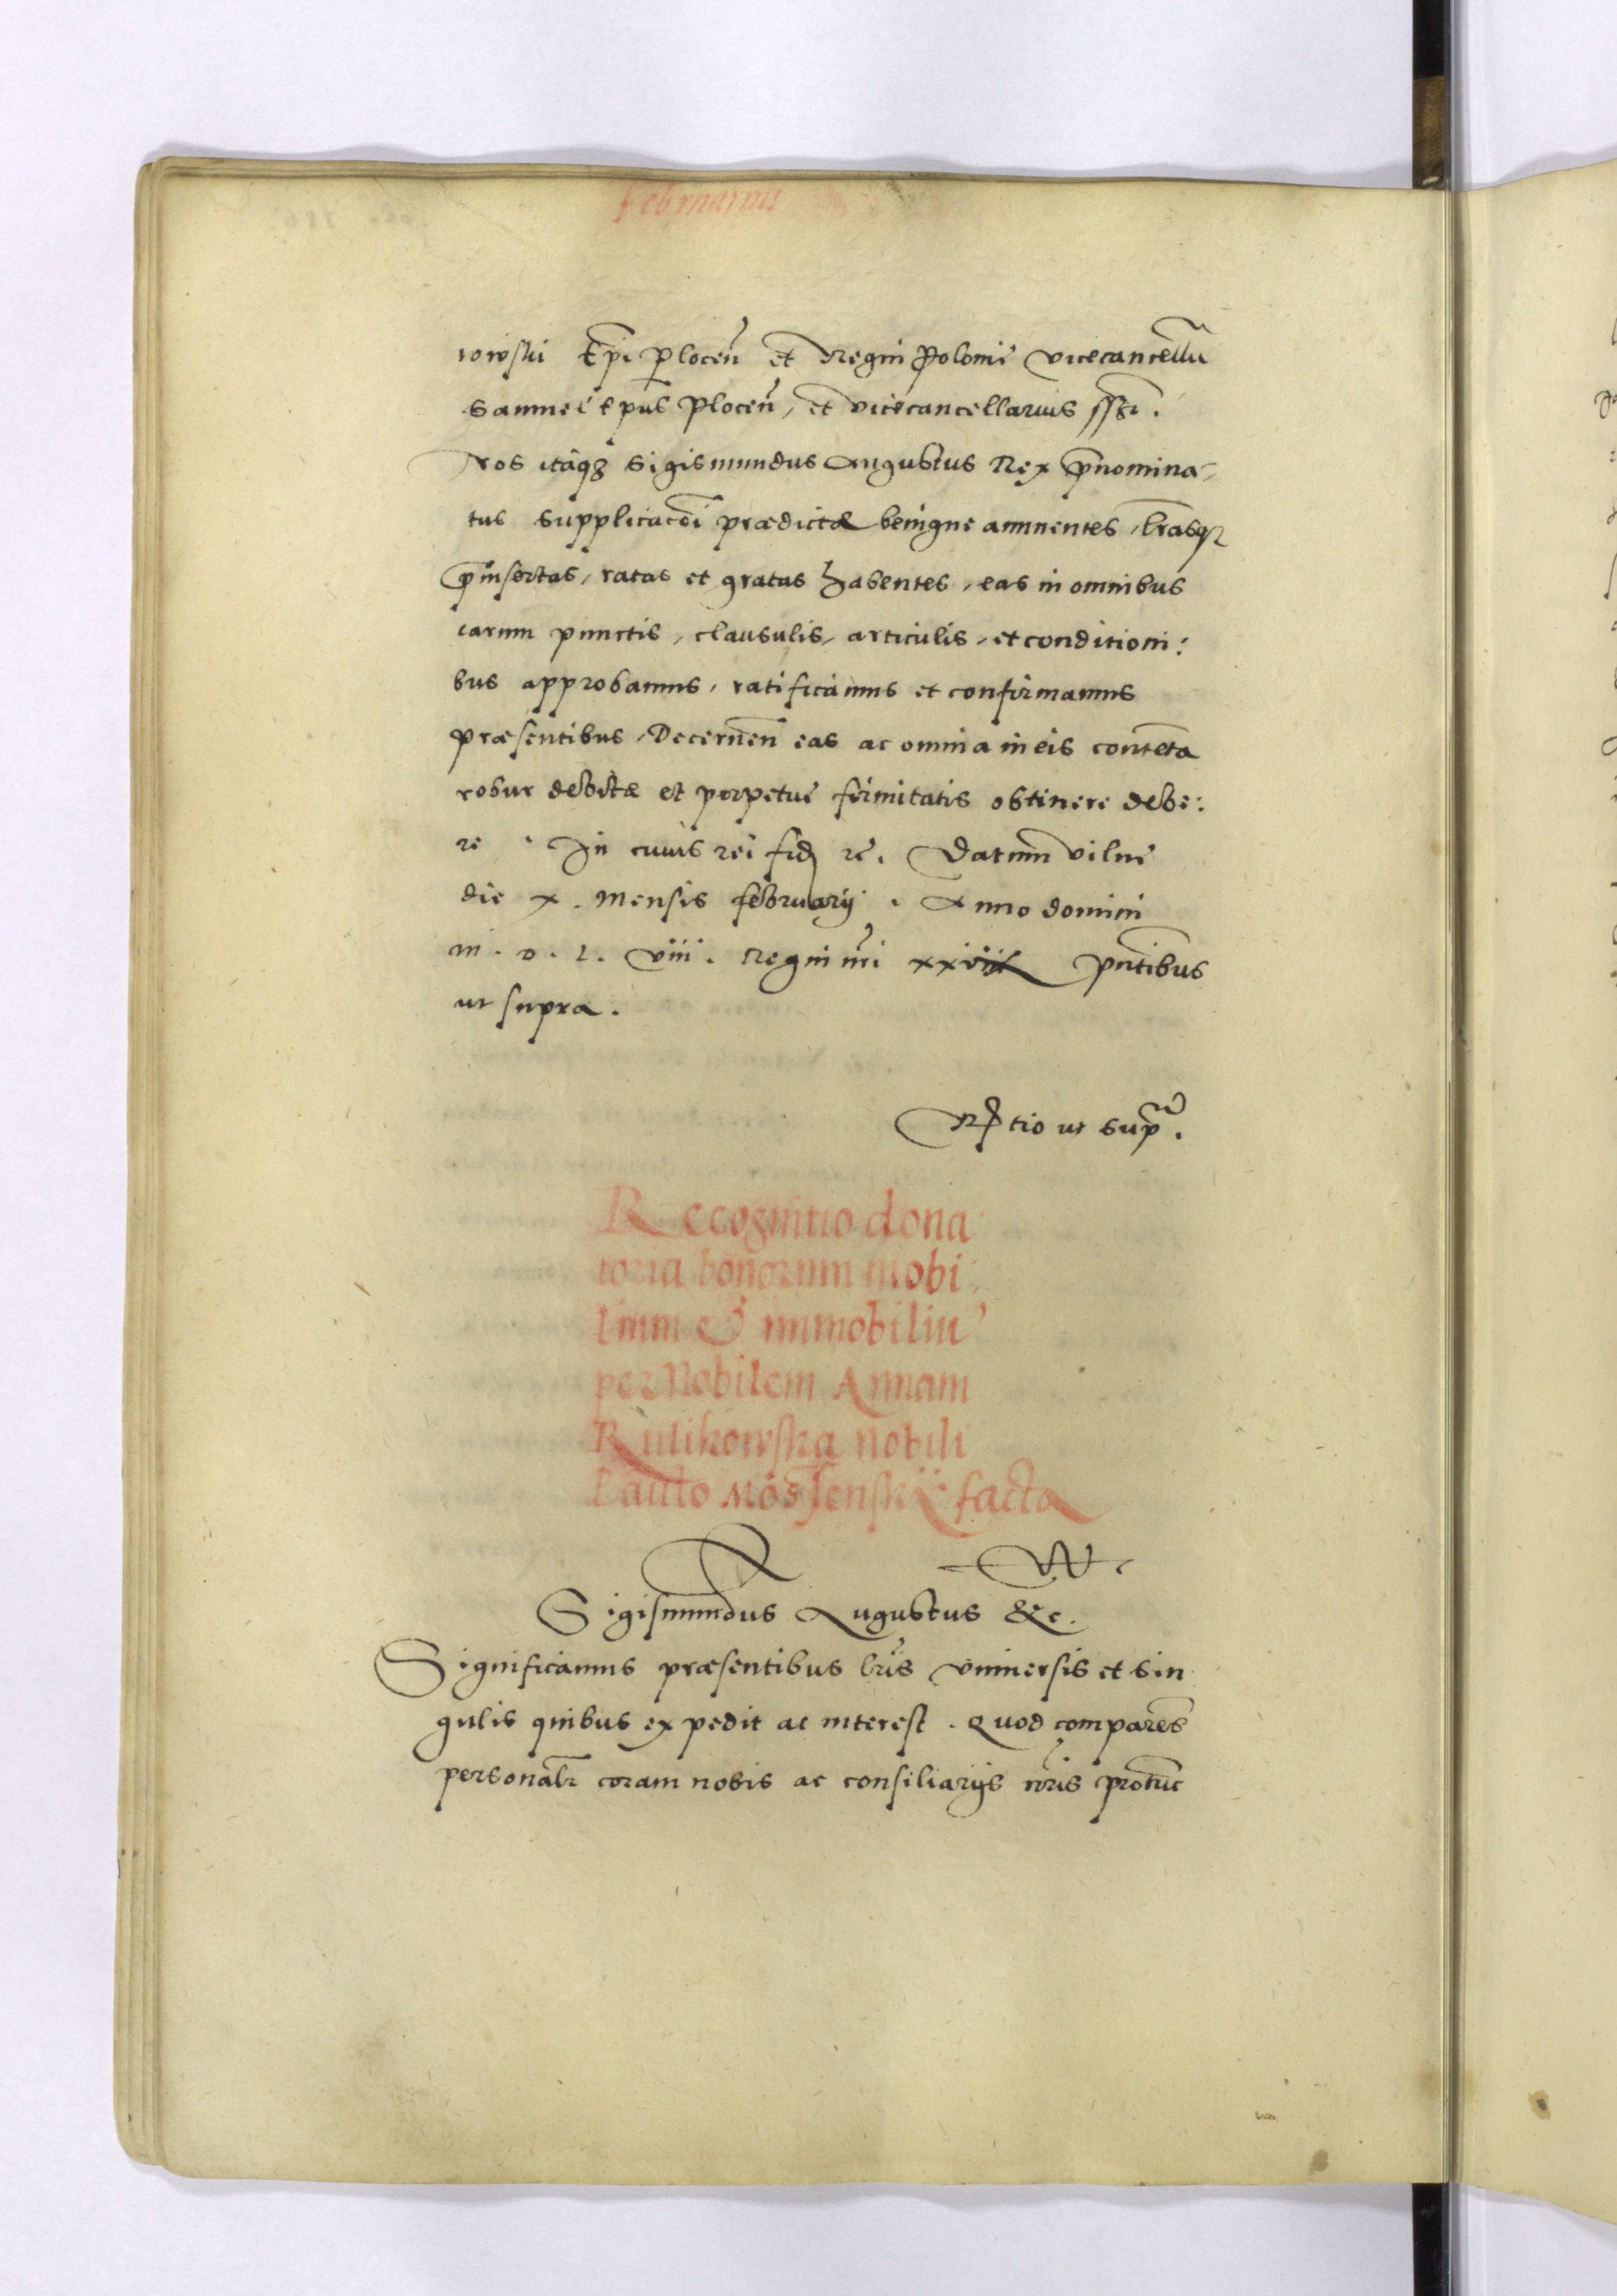 Februarius
iowski Epi Plocen et Regni Polonie vicecancellarii
Samuel Epus Plocen, et vicecancellarius sst.
Nos itaq3 Sigismundus Augustus Rex pnomina-
tus supplicacoi prædictæ benigne annuentes, lrasq3
pinsertas, ratas et gratas habentes, eas in omnibus
earum punctis, clausulis, articulis, et conditioni:
bus approbamus, ratificamus et confirmamus
præsentibus, Decernen eas ac omnia in eis contenta
robur debitæ et perpetue firmitatis obtinere debe:
re . In cuius rei fid rc. Datum Vilne
die x. mensis februarij . Anno domini
m. d. l. viii. Regni nri pntibus
ut supra.
Rtio ut supra.
Recognitio dona
toria bonorum mobi
lium & immobiliu
per Nobilem Annam
Rulikowska nobili
Paulo facta
Sigismundus Augustus &c.
Significamus præsentibus lris vniuersis et sin
gulis quibus expedit ac interest. Quod comparens
personalr coram nobis ac consiliarijs nris protunc